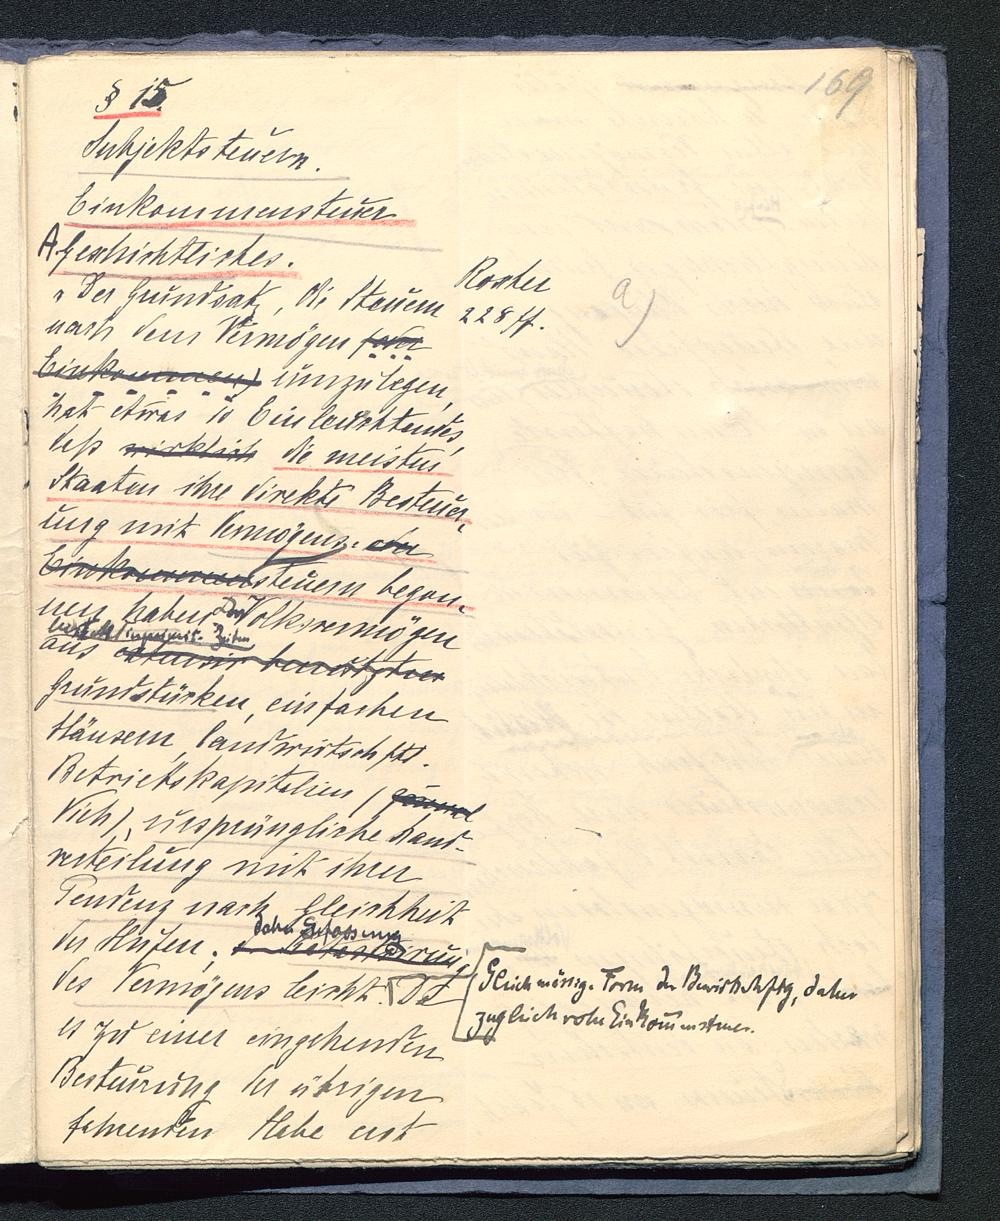 169
§ 15.
Subjektsteuern.
Einkommensteuer
A Geschichtliches.
"Der Grundsatz, die Steuern
nach dem Vermögen (oder
Einkommen) umzulegen,
hat etwas so Einleuchtendes,
daß wirklich die meisten
Staaten ihre direkte Besteuer-
ung mit Vermögens- oder
Einkommensteuern began-
nen haben. Das Volksvermögen
besteht in primit. Zeiten
aus extensiv benutzten
Grundstücken, einfachen
Häusern, landwirtschftl.
Betriebskapitalien (
Vieh), ursprüngliche Land-
verteilung mit ihrer
Tendenz nach Gleichheit
der Hufen;
daher Erfassung
des Vermögens leicht. Da
es zu einer eingehenden
Besteurung der übrigen
fahrenden Habe erst
Roscher
228 ff.
a)
Gleichmässige Form der Bewirtschftg, daher
zugleich rohe Einkommensteuer.